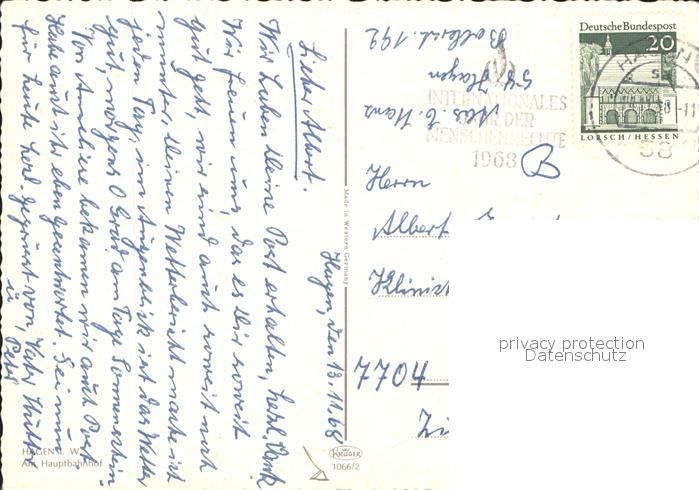 Hagen, den 13.11.68
Lieber Albert.
Wir haben Deine Post erhalten, herzl. Dank
Wir freuen uns, das es Dir soweit
gut geht, wir sind auch soweit noch
munter, Deinen Wetterbericht mache ich
jeden Tag, im Augenblick ist das Wetter
gut, morgens 0 Grad am Tage Sonnenschein.
Von Anneliese bekamen wir auch Post
Habe auch ihr eben geantwortet. Sei nun
für heute herzl. gegrüsst von, Vater Mutter
u. Peter
HAGEN i. W.
Am Hauptbahnhof
Made in Western Germany
KRÜGER
1066/2
Abs. E. Hans
58 Hagen
Boelerstr. 192
INTERNATIONALES
JAHR DER
MENSCHENRECHTE
1968
Deutsche Bundespost
20
LORSCH / HESSEN
HAGEN
58
Herrn
Albert
7704
privacy protection
Datenschutz